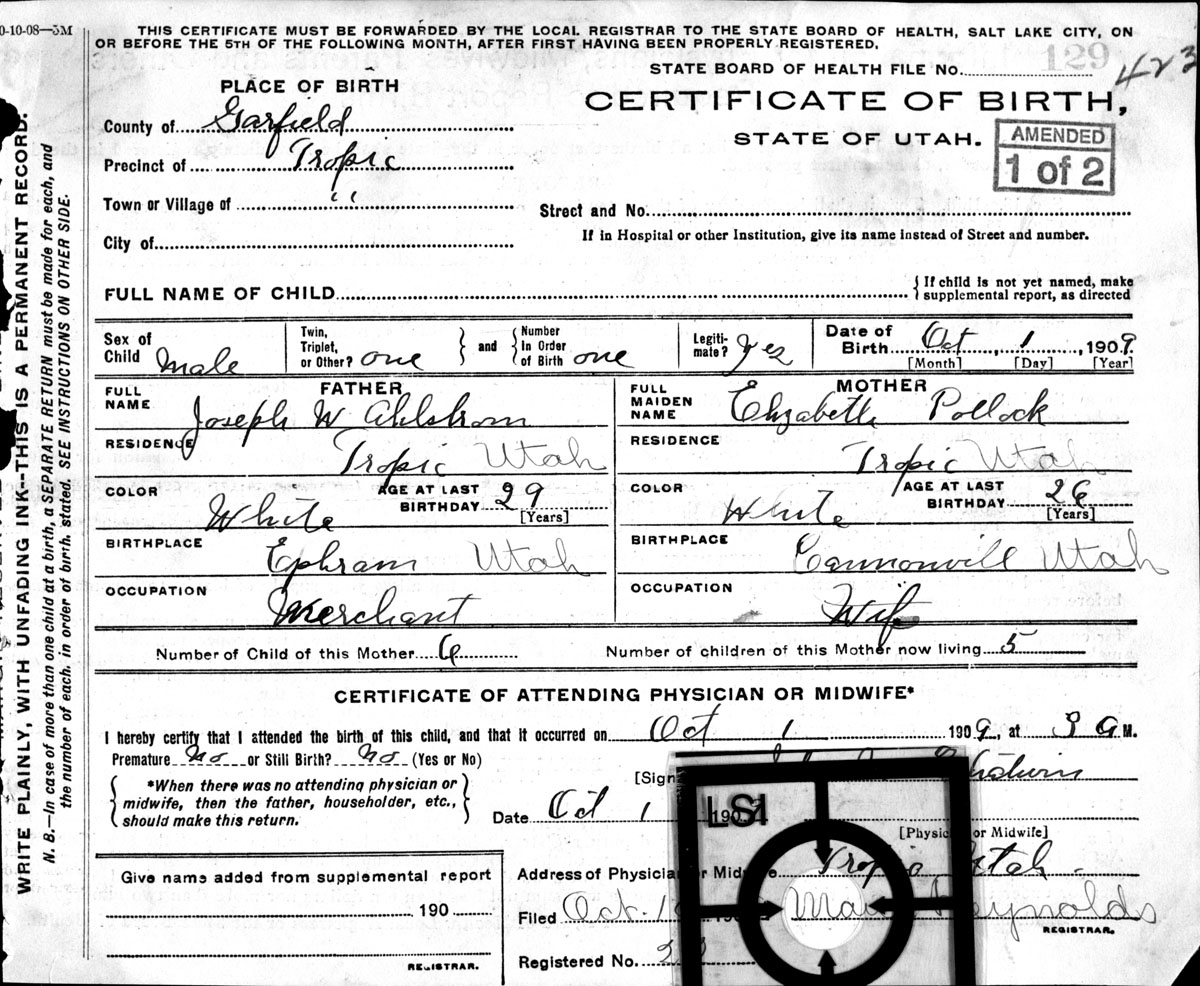 0-10-08—3M
THIS CERTIFICATE MUST BE FORWARDED BY THE LOCAL REGISTRAR TO THE STATE BOARD OF HEALTH, SALT LAKE CITY, ON
OR BEFORE THE 5TH OF THE FOLLOWING MONTH, AFTER FIRST HAVING BEEN PROPERLY REGISTERED.
STATE BOARD OF HEALTH FILE No. 129 423
PLACE OF BIRTH
CERTIFICATE OF BIRTH,
STATE OF UTAH.
AMENDED
1 of 2
County of Garfield
Precinct of Tropic
Town or Village of "
Street and No.
City of
If in Hospital or other Institution, give its name instead of Street and number.
FULL NAME OF CHILD
{If child is not yet named, make
supplemental report, as directed
Sex of Child Male
Twin, Triplet, or Other? one } and { Number In Order of Birth one
Legiti- mate? yes
Date of Birth Oct 1, 1909.
[Month] [Day] [Year]
FATHER
FULL NAME Joseph W Ahlstrom
RESIDENCE Tropic Utah
COLOR White
AGE AT LAST BIRTHDAY 29
[Years]
BIRTHPLACE Ephram Utah
OCCUPATION Merchant
MOTHER
FULL MAIDEN NAME Elizabeth Pollock
RESIDENCE Tropic Utah
COLOR White
AGE AT LAST BIRTHDAY 26
[Years]
BIRTHPLACE Cannonvill Utah
OCCUPATION Wife
Number of Child of this Mother 6
Number of children of this Mother now living 5
CERTIFICATE OF ATTENDING PHYSICIAN OR MIDWIFE*
I hereby certify that I attended the birth of this child, and that it occurred on Oct 1 1909, at 3 A M.
Premature No or Still Birth? No (Yes or No)
*When there was no attending physician or
midwife, then the father, householder, etc.,
should make this return.
[Sign
Date Oct 1 190
LSI
[Physic or Midwife]
Address of Physician or Midwife Tropic Utah
Give name added from supplemental report
190
REGISTRAR.
Filed Oct. 190 Reynolds
REGISTRAR.
Registered No.
WRITE PLAINLY, WITH UNFADING INK--THIS IS A PERMANENT RECORD.
N. B.—In case of more than one child at a birth, a SEPARATE RETURN must be made for each, and
the number of each, in order of birth, stated. SEE INSTRUCTIONS ON OTHER SIDE.